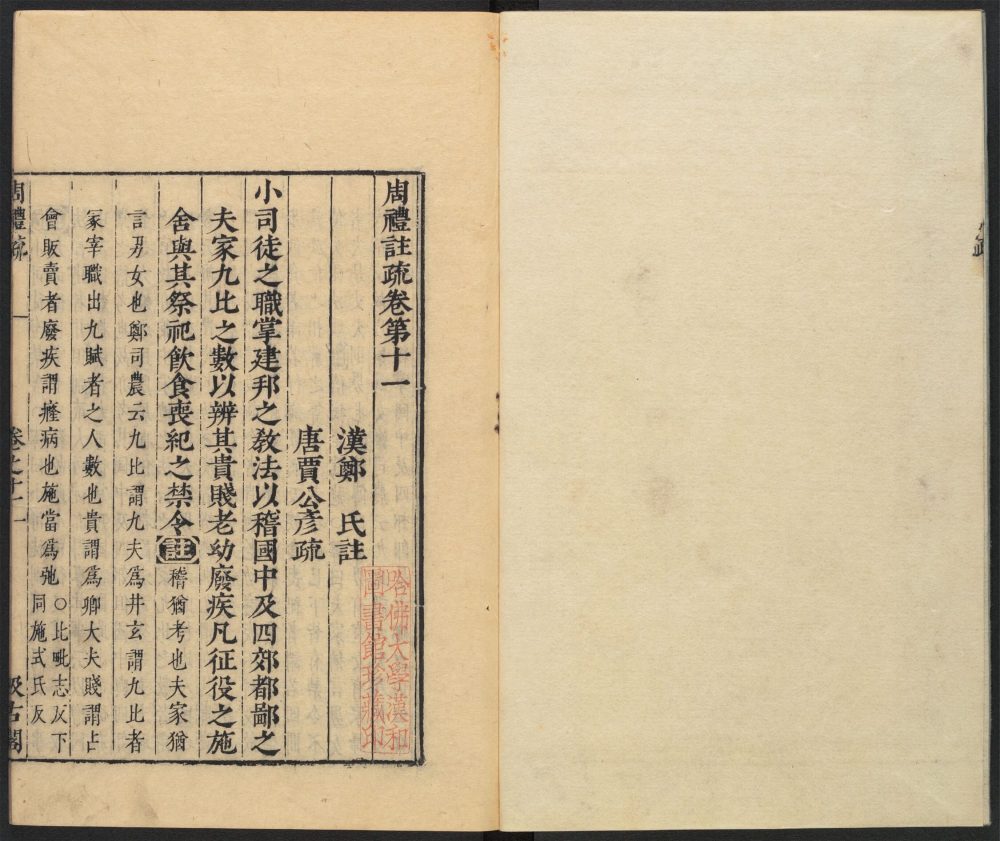 周禮註疏卷第十一
漢鄭　氏註
唐賈公彥疏
小司徒之職掌建邦之教法以稽國中及四郊都鄙之
夫家九比之數以辨其貴賤老幼廢疾凡征役之施
舍與其祭祀飲食喪紀之禁令註稽猶考也夫家猶
言男女也鄭司農云九比謂九夫為井玄謂九比者
冢宰職出九賦者之人數也貴謂為卿大夫賤謂占
會販賣者廢疾謂癃病也施當為弛○比毗志反下
同施式氏反
周禮疏
卷之十一
汲古閣
哈佛大學漢和
圖書館珍藏印